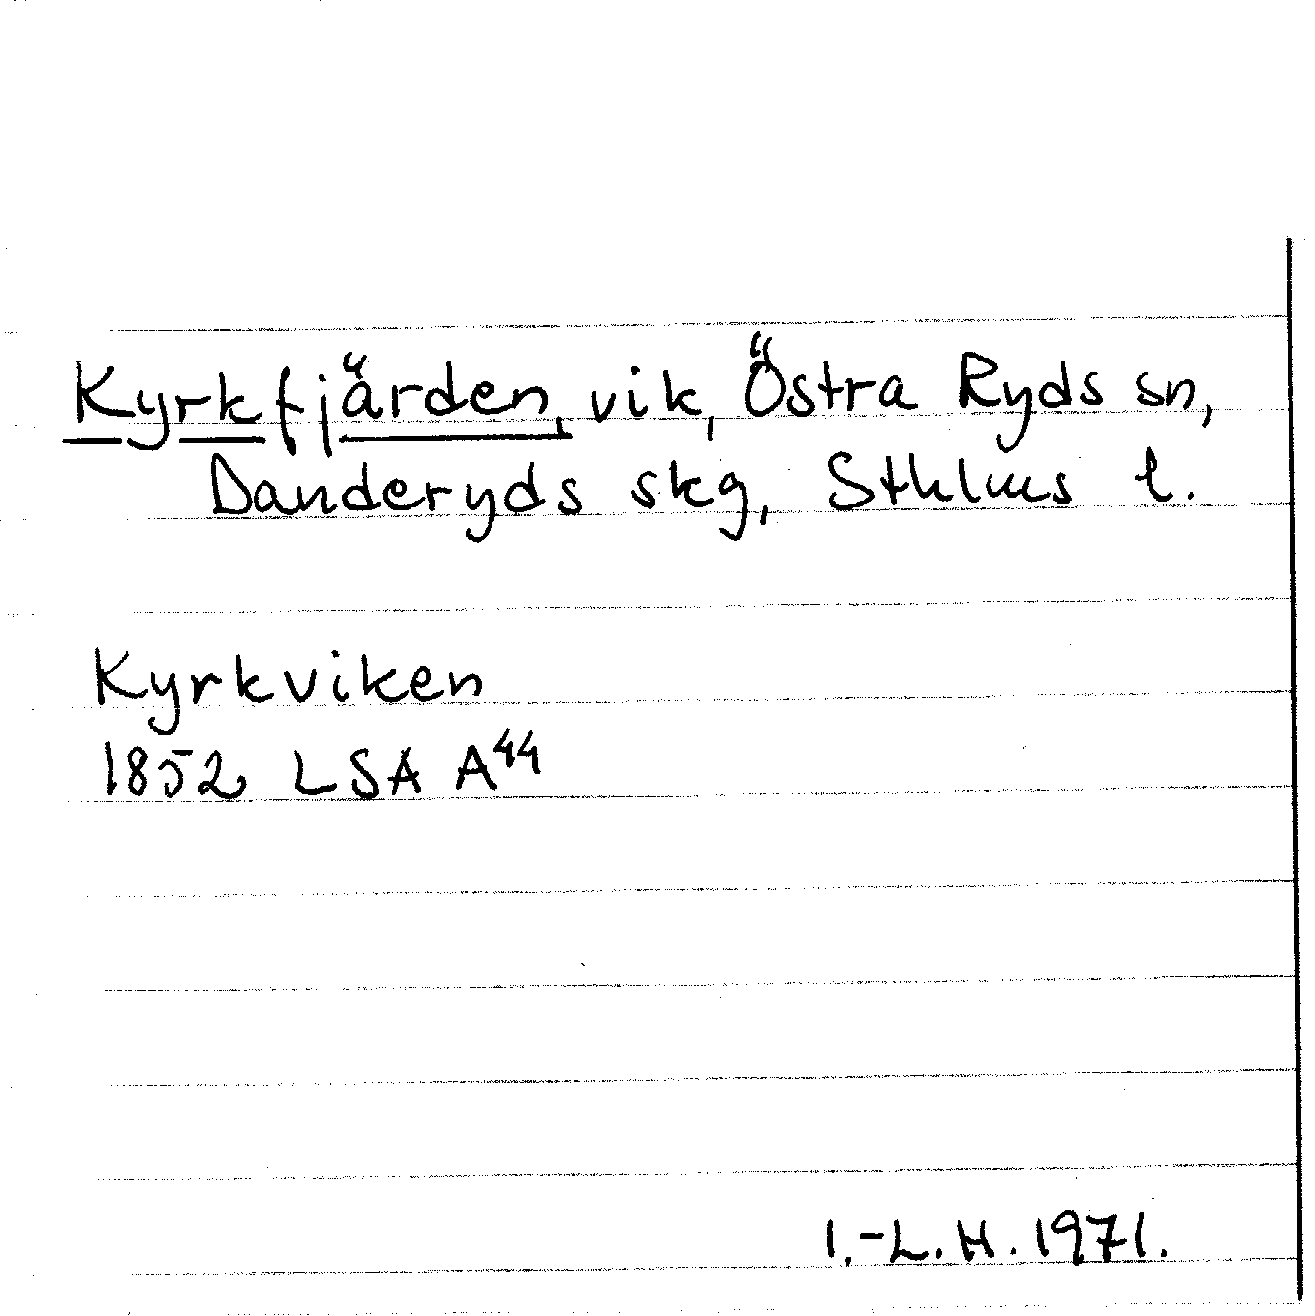 Kyrkfjärden, vik, Östra Ryds sn,
Danderyds skg, Sthlms l.
Kyrkviken
1852 LSA A44
I.-L. H. 1971.